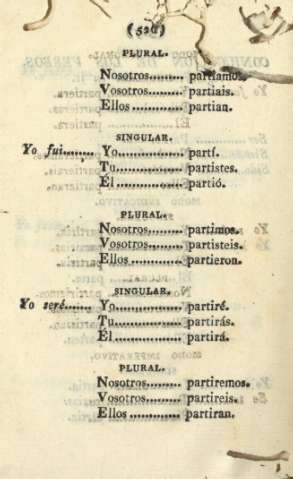 (526)
PLURAL.
Nosotros......... partiamos.
Vosotros......... partiais.
Ellos ............ partian.
SINGULAR.
Yo fui....... Yo................ partí.
Tu................ partistes.
Él................ partió.
PLURAL.
Nosotros......... partimos.
Vosotros......... partisteis.
Ellos ............ partieron.
SINGULAR.
Yo seré....... Yo................ partiré.
Tu................ partirás.
Él................ partirá.
PLURAL.
Nosotros......... partiremos.
Vosotros......... partireis.
Ellos ............ partiran.